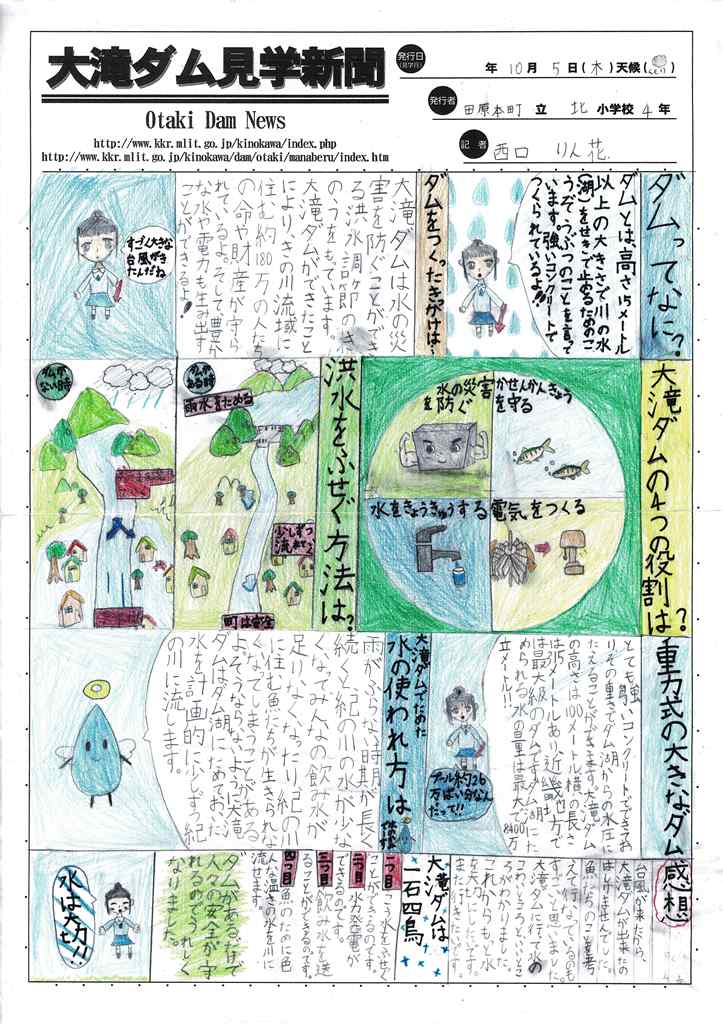 大滝ダム見学新聞
Otaki Dam News
http://www.kkr.mlit.go.jp/kinokawa/index.php
http://www.kkr.mlit.go.jp/kinokawa/dam/otaki/manaberu/index.htm
発行日
(見学日)
年10月5日(木)天候(くもり)
発行者
田原本町立北小学校4年
記者
西口りん花
ダムってなに?
ダムとは、高さ15メートル
以上の大きさで川の水
(湖)をせき止めるためのこ
うぞうぶつのことを言って
います。強いコンクリートで
つくられているよ!!
ダムをつくったきかけは…
大滝ダムは水の災
害を防ぐことができ
る洪水調節のき
のうをもています。
大滝ダムができたこと
により、きの川流域に
住む約180万の人たち
の命や財産が守ら
れているよ。そして豊か
な水や電力も生み出す
ことができるよ!
すごく大きな
台風がき
たんだね
大滝ダムの4つの役割は?
水の災害
を防ぐ
かせんかんきょう
を守る
水をきょうきゅうする
電気をつくる
洪水をふせぐ方法は?
ダムが
ある時
雨水をためる
少しずつ
流れてく
町は安全
ダムが
ない時
重力式の大きなダム
とても強いコンクリートでできてお
りその重さでダム湖からの水圧に
たえることができます。大滝ダム
の高さは100メートル横の長さ
は315メートルあり近畿地方で
は最大級のダムです。ダム湖にた
められる水の量は最大で8400万
立メートル!
プール約26
万ばい分なん
だって!!
大滝ダムでためた
水の使われ方は
雨がふらない時期が長く
続くと紀の川の水が少な
くなってみんなの飲み水が
足りなくなったり紀の川
に住む魚たちが生きられな
くなってしまうことがある
よ。そうならないよう大滝
ダムはダム湖にためておいた
水を計画的に少しずつ紀
の川に流します。
感想
台風が来たから、
大滝ダムが出来たの
はしりませんでした。
魚たちのことを考
えて行なっているのも
すごいと思いました。
大滝ダムに行て水の
こわいところといいとこ
ろがわかりました。
これからもっと水
を大切にしたいです。
また行きたいです。
大滝ダムは
一石四鳥
一つ目
こう水をふせぐ
ことができるのです。
二つ目
水力発電が
できるのです。
三つ目
飲み水を送
ることができるのです。
四つ目
魚のために色
んな温さの水を川に
流せます。
ダムがあるだけで
人々の安全が守
れるのでうれしく
なりました。
水は大切!!